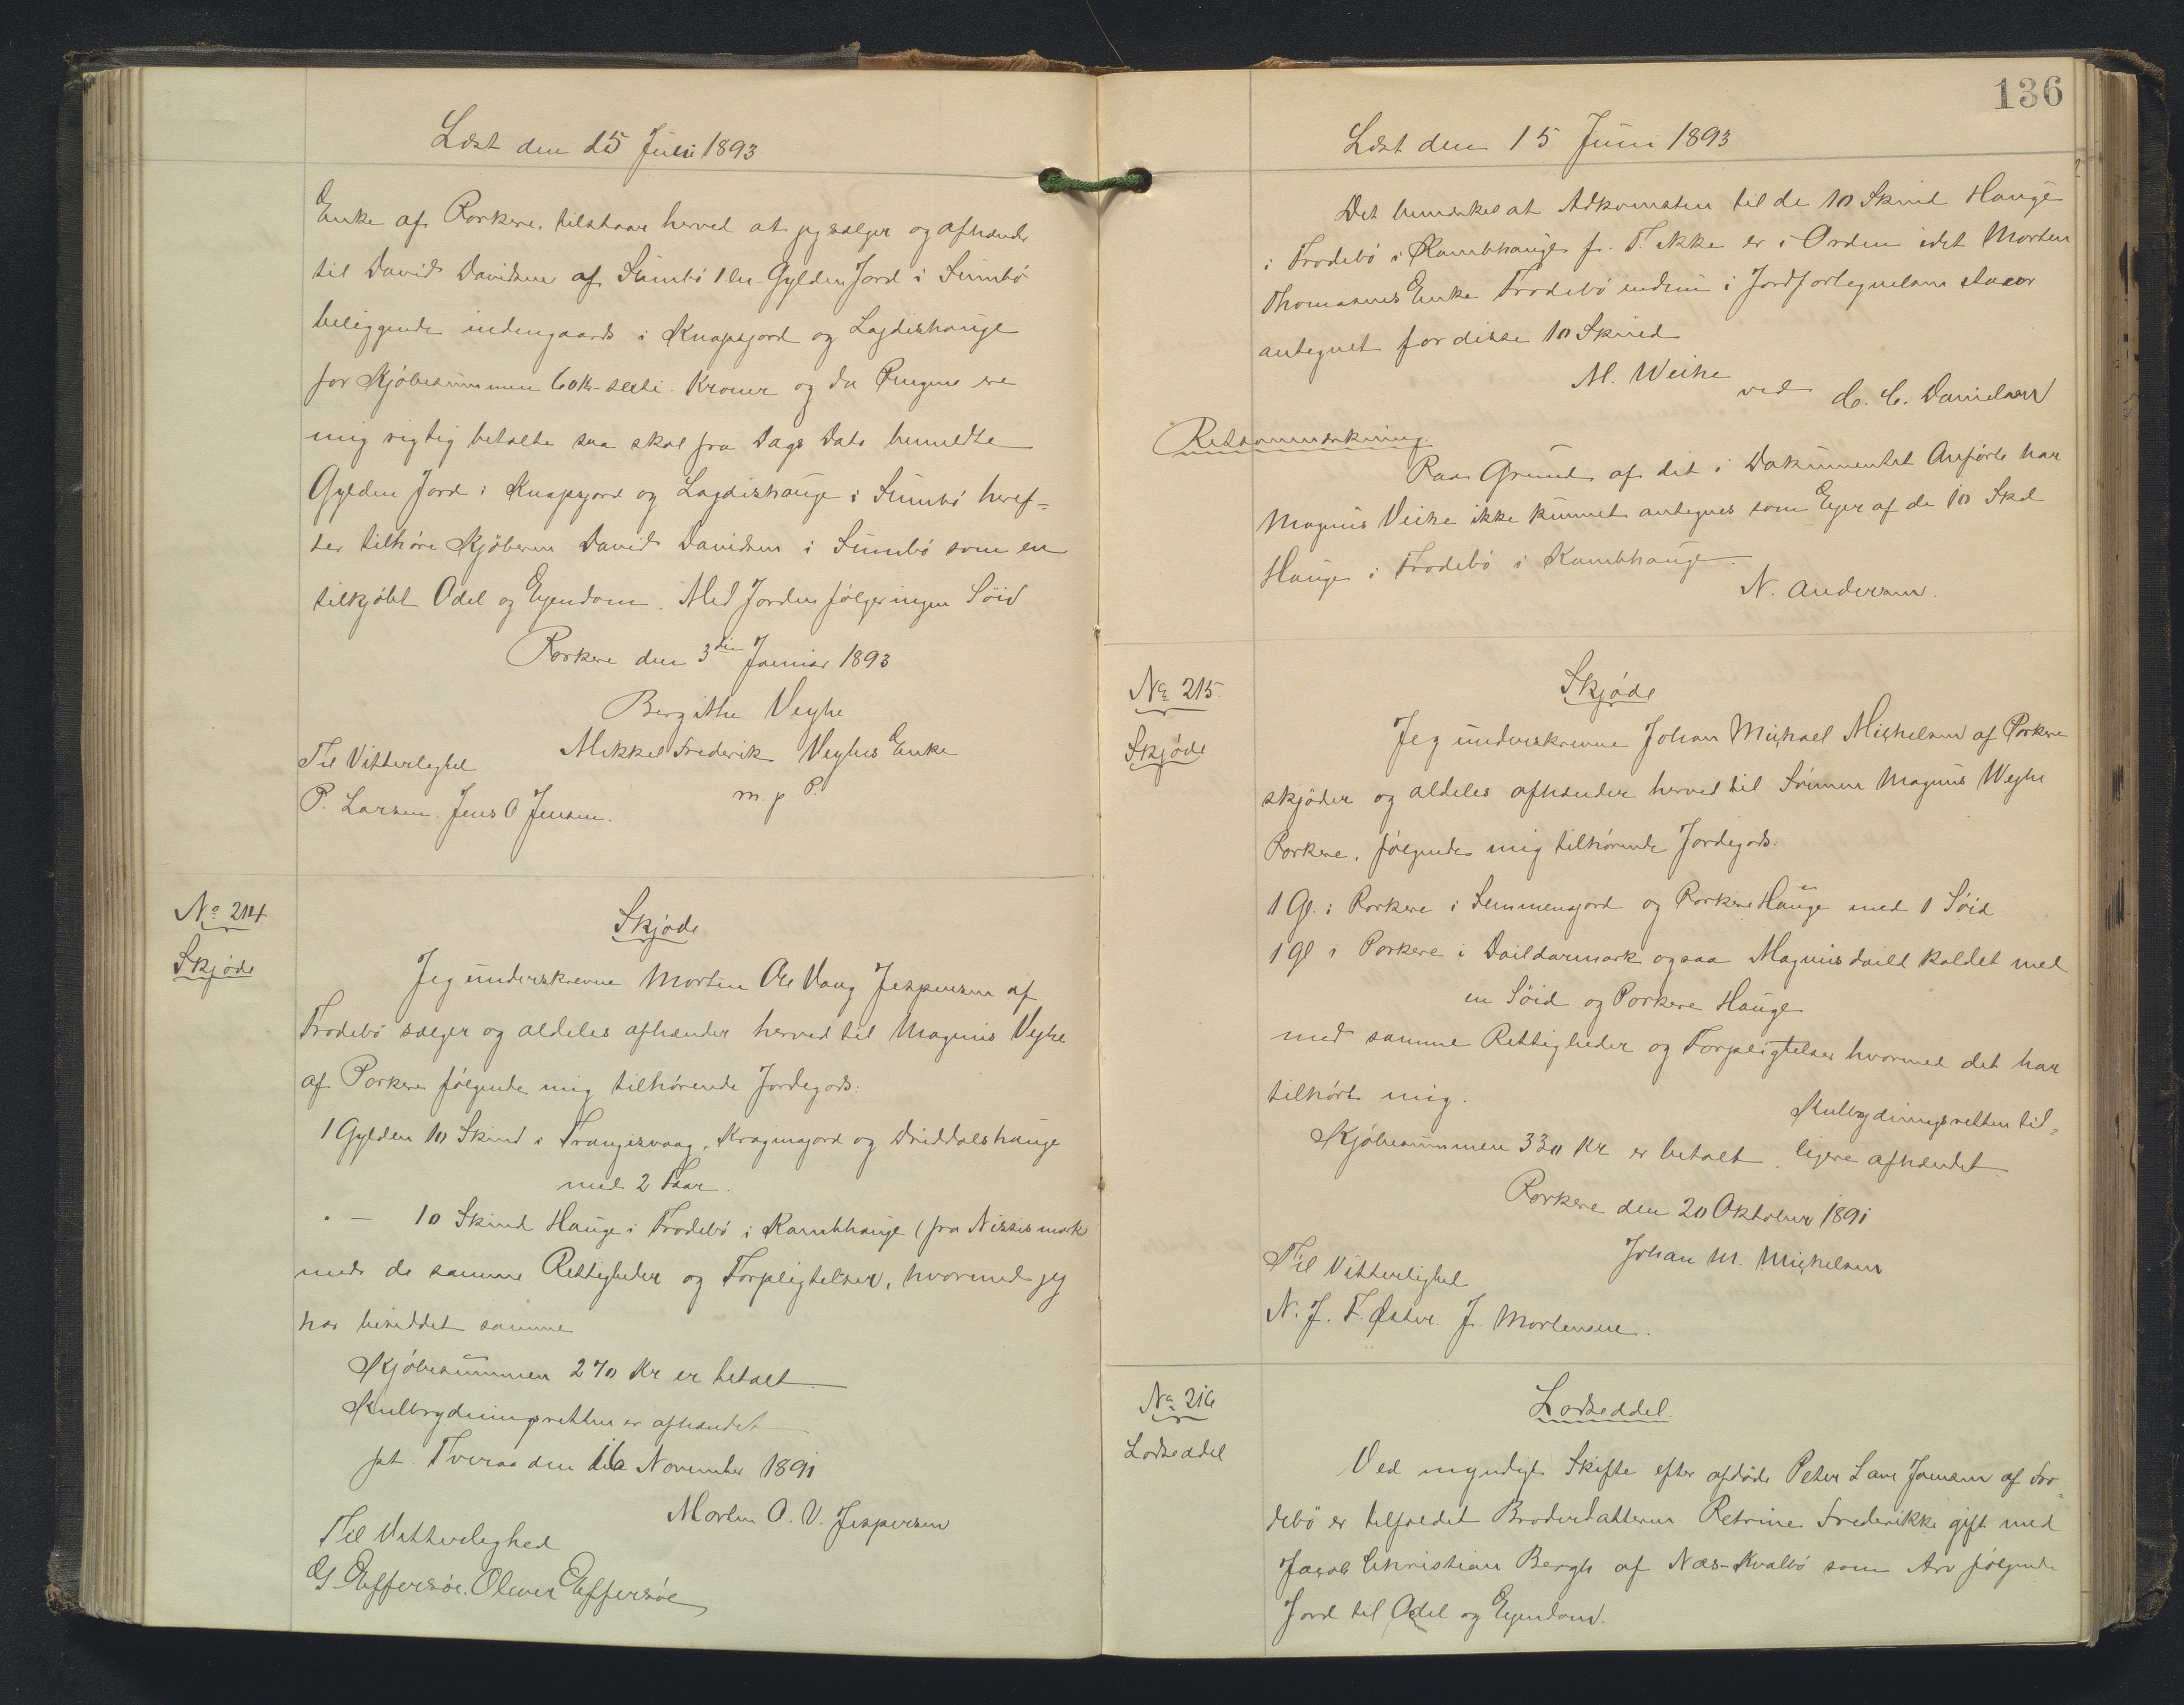 Læst den 15 Juni 1893
Enke af Porkere, tilstaar herved at jeg sælger og afhænde
til David Davidsen af Sumbö 1 en Gylden Jord i Sumbö
beliggende indengaards i Knapsjord og Lagdishauge
for Kjöbesummen 60 Kr - seksti - Kroner og da Pengene ere
mig rigtig betalte saa skal fra Dags Dato bemeldte
Gylden Jord i Knapsjord og Lagdishauge i Sumbö heref=
ter tilhöre Kjöberen David Davidsen i Sumbö som en
tilkjöbt Odel og Ejendom. Med Jorden fölger ingen Söid
Porkere den 3die Januar 1893
Bergithe Veyhe
Mikkel Frederik Veyhes Enke
m. p. P.
Til Vitterlighed
P. Larsen. Jens O Jensen.
No 214
Skjöde
Skjöde
Jeg underskrevne Morten Ole Vang Jespersen af
Frodebö sælger og aldeles afhænder herved til Magnus Vejhe
af Porkere fölgende mig tilhörende Jordegods:
1 Gylden 10 Skind i Trangisvaag, Kragmajord og Dniddalshauge
med 2 Faar.
" — 10 Skind Hauge i Frodebö i Kambhauge (fra Nissismark
med de samme Rettigheder og Forpligtelser, hvormed jeg
har besiddet samme
Kjöbesummen 270 Kr er betalt
Kulbrydningsretten er afhændet
pt. Tveraa den 16 November 1891
Morten O. V. Jespersen
Til Vitterlighed
G. Effersöe. Oliver Effersöe
136
Læst den 15 Juni 1893
Det bemærkes at Adkomsten til de 10 Skind Hauge
i Frodebö i Kambhauge f. T. ikke er i Orden idet Morten
Thomasens Enke Frodebö endnu i Jordfortegnelsen staaer
antegnet for disse 10 Skind
M. Weihe
ved C. C. Danielsen
Retsanmærkning.
Paa Grund af det i Dokumentet Anförte har
Magnus Veihe ikke kunnet antegnes som Ejer af de 10 Skd
Hauge i Frodebö i Kambhauge.
N. Andersen.
No 215.
Skjöde
Skjöde
Jeg underskrevne Johan Michael Michelsen af Porkere
skjöder og aldeles afhænder herved til Svimur Magnus Wejhe
Porkere, fölgende mig tilhörende Jordegods.
1 Gl. i Porkere i Semmensjord og Porkere Hauge med 1 Söid
1 Gl i Porkere i Daildarmark ogsaa Magnusdaild kaldet med
en Söid og Porkere Hauge
med samme Rettigheder og Forpligtelser hvormed det har
tilhört mig.
Kjöbesummen 330 Kr er betalt. Kulbrydningsretten til=
ligere afhændet
Porkere den 20 Oktober 1891
Johan M. Michelsen
Til Vitterlighed
N. J. F. Öster. J. Mortensen.
No 216
Lodseddel
Lodseddel.
Ved myndigt Skifte efter afdöde Peter Lars Joensen af Fro=
debö er tilfaldet Broderdatteren Petrine Frederikke gift med
Jacob Christian Bergh af Næs-Hvalbö som Arv fölgende
Jord til Odel og Ejendom.